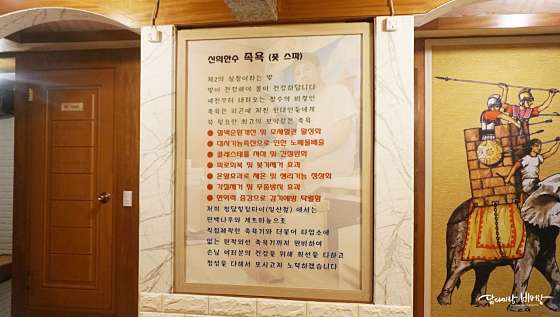 신의한수 족욕 (풋 스파)
제2의 심장이라는 발
발이 건강해야 몸이 건강하답니다
예전부터 내려오는 장수의 비결인
족욕은 피곤에 지친 현대인들에게
꼭 필요한 최고의 보약같은 족욕
● 혈액순환개선 및 모세혈관 활성화
● 대사기능촉진으로 인한 노폐물배출
● 콜레스테롤 저하 및 긴장완화
● 피로회복 및 붓기제거 효과
● 온열효과로 체온 및 생리기능 정상화
● 각질제거 및 무좀방지 효과
● 면역력 증강으로 감기예방 탁월함
저희 청담힐링타이(일산점) 에서는
편백나무와 게르마늄으로
직접제작한 족욕기와 더불어 타업소에
없는 원적외선 족욕기까지 완비하여
손님 여러분의 건강을 위해 최선을 다하고
정성을 다해서 모시고자 노력하겠습니다